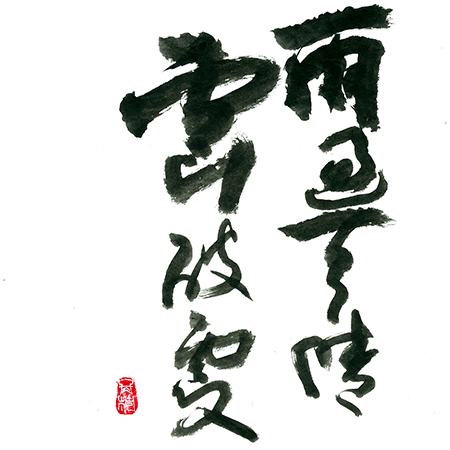 雨過天晴
雲破處